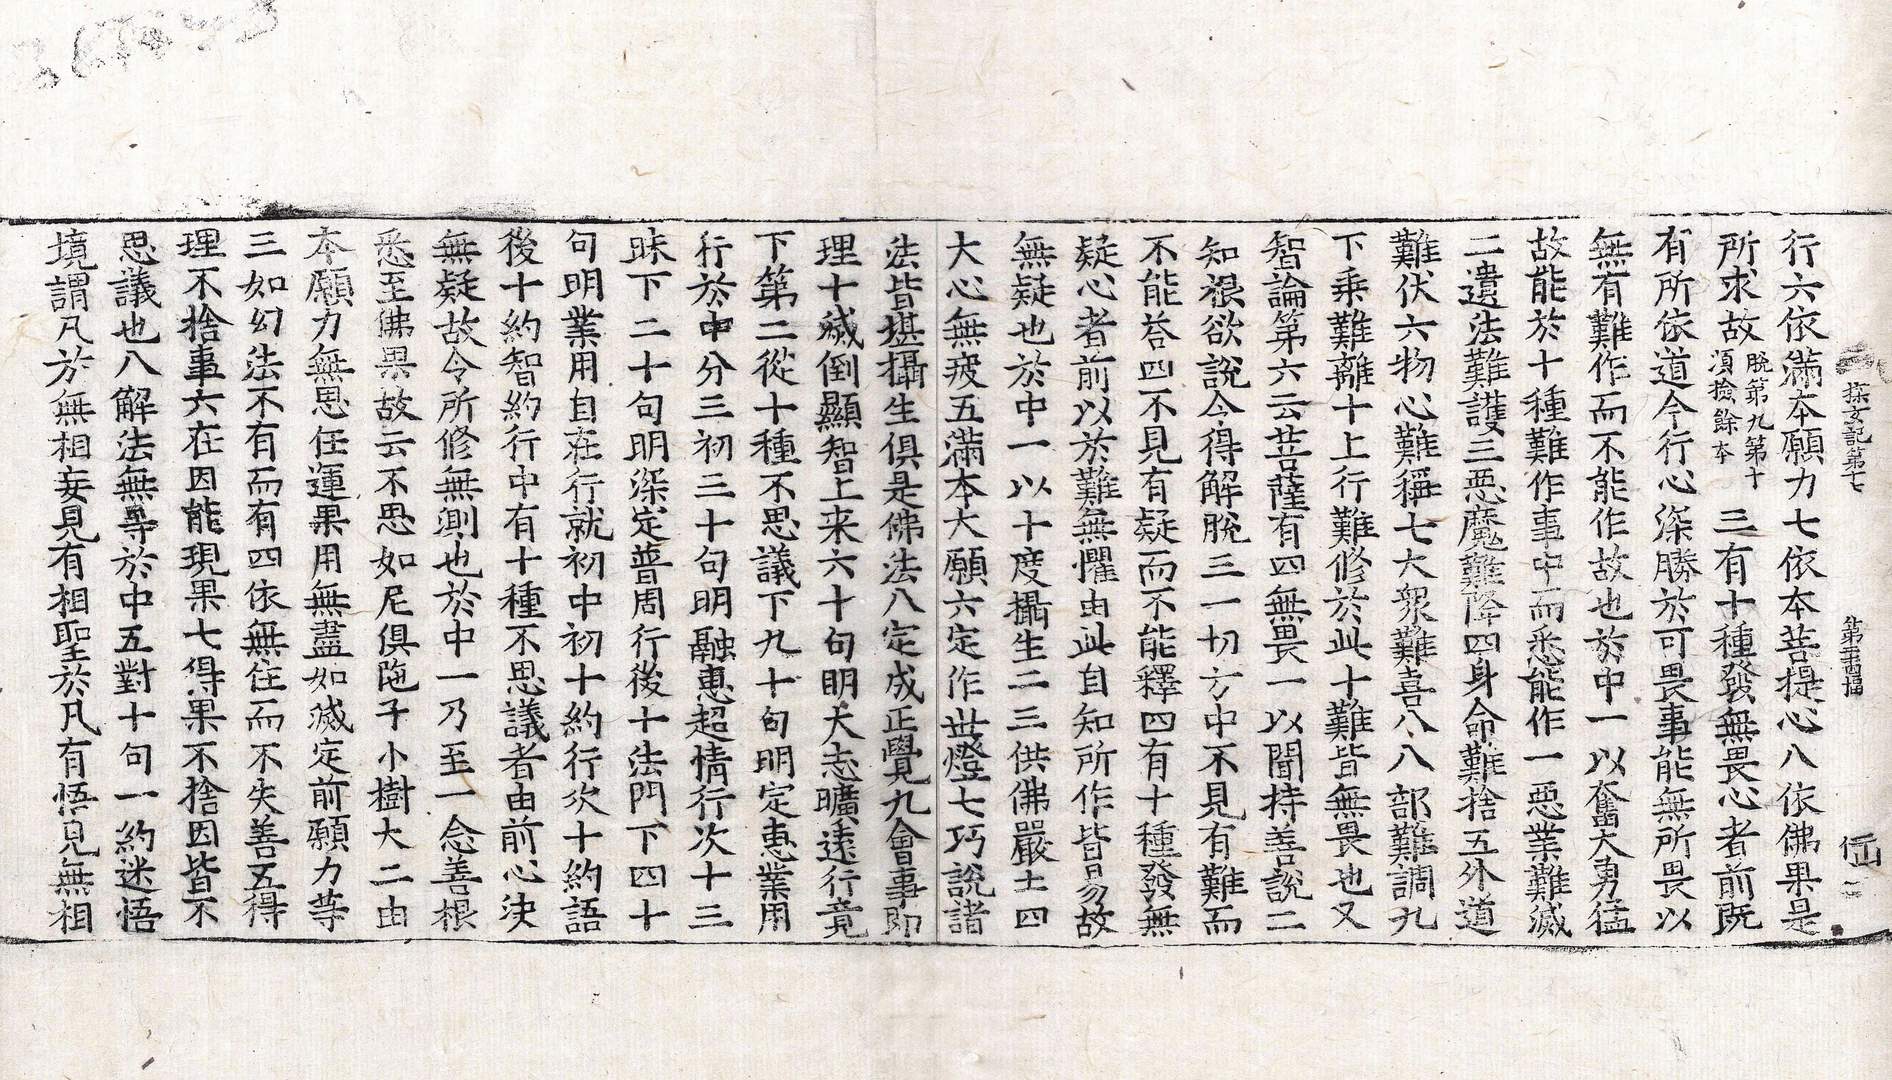 探玄記第十七 第三十四幅 仙 二
行六依滿本願力七依本菩提心八依佛果是
所求故脫第九第十須撿餘本三有十種發無畏心者前既
有所依道今行心深勝於可畏事能無所畏以
無有難作而不能作故也於中一以奮大勇猛
故能於十種難作事中而悉能作一惡業難滅
二遺法難護三惡魔難降四身命難捨五外道
難伏六物心難稱七大衆難喜八八部難調九
下乗難離十上行難修於此十難皆無畏也又
智論第六云菩薩有四無畏一以聞持善說二
知根欲說令得解脫三一切方中不見有難而
不能荅四不見有疑而不能釋四有十種發無
疑心者前以於難無懼由此自知所作皆易故
無疑也於中一以十度攝生二三供佛嚴土四
大心無疲五滿本大願六定作世燈七巧說諸
法皆堪攝生俱是佛法八定成正覺九會事即
理十滅倒顯智上来六十句明大志曠遠行竟
下第二從十種不思議下九十句明定惠業用
行於中分三初三十句明融惠超情行次十三
昧下二十句明深定普周行後十法門下四十
句明業用自在行就初中初十約行次十約語
後十約智約行中有十種不思議者由前心決
無疑故令所修無測也於中一乃至一念善根
悉至佛果故云不思如尼俱陁子小樹大二由
本願力無思任運果用無盡如滅定前願力等
三如幻法不有而有四依無住而不失善五得
理不捨事六在因能現果七得果不捨因皆不
思議也八解法無等於中五對十句一約迷悟
境謂凡於無相妄見有相聖於凡有悟見無相